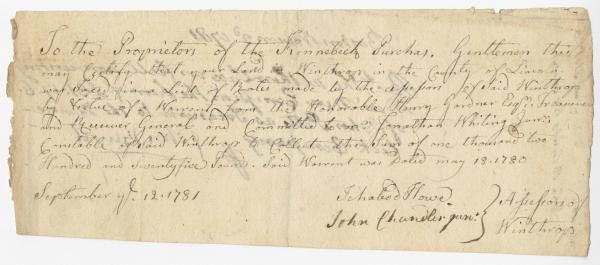 To the Proprietors of the Kennebeck Purchas. Gentlemen this
may Certify that your Land in Winthrop in the County of Lincoln
was Taxed in a List of Rates made by the assessors of Said Winthrop
by Vertue of a Warrant from the Honorable Henry Gardner Esqr. Treasurer
and Receiver General and Committed to Jonathan Whiting Junr.
Constable of Said Winthrop to Collect the Sum of one thousand two
Hundred and Twentyfive Pounds. Said Warrant was Dated may 18. 1780
September ye. 12. 1781
Ichabod Howe
John Chandler junr.
Assessors of
Winthrop